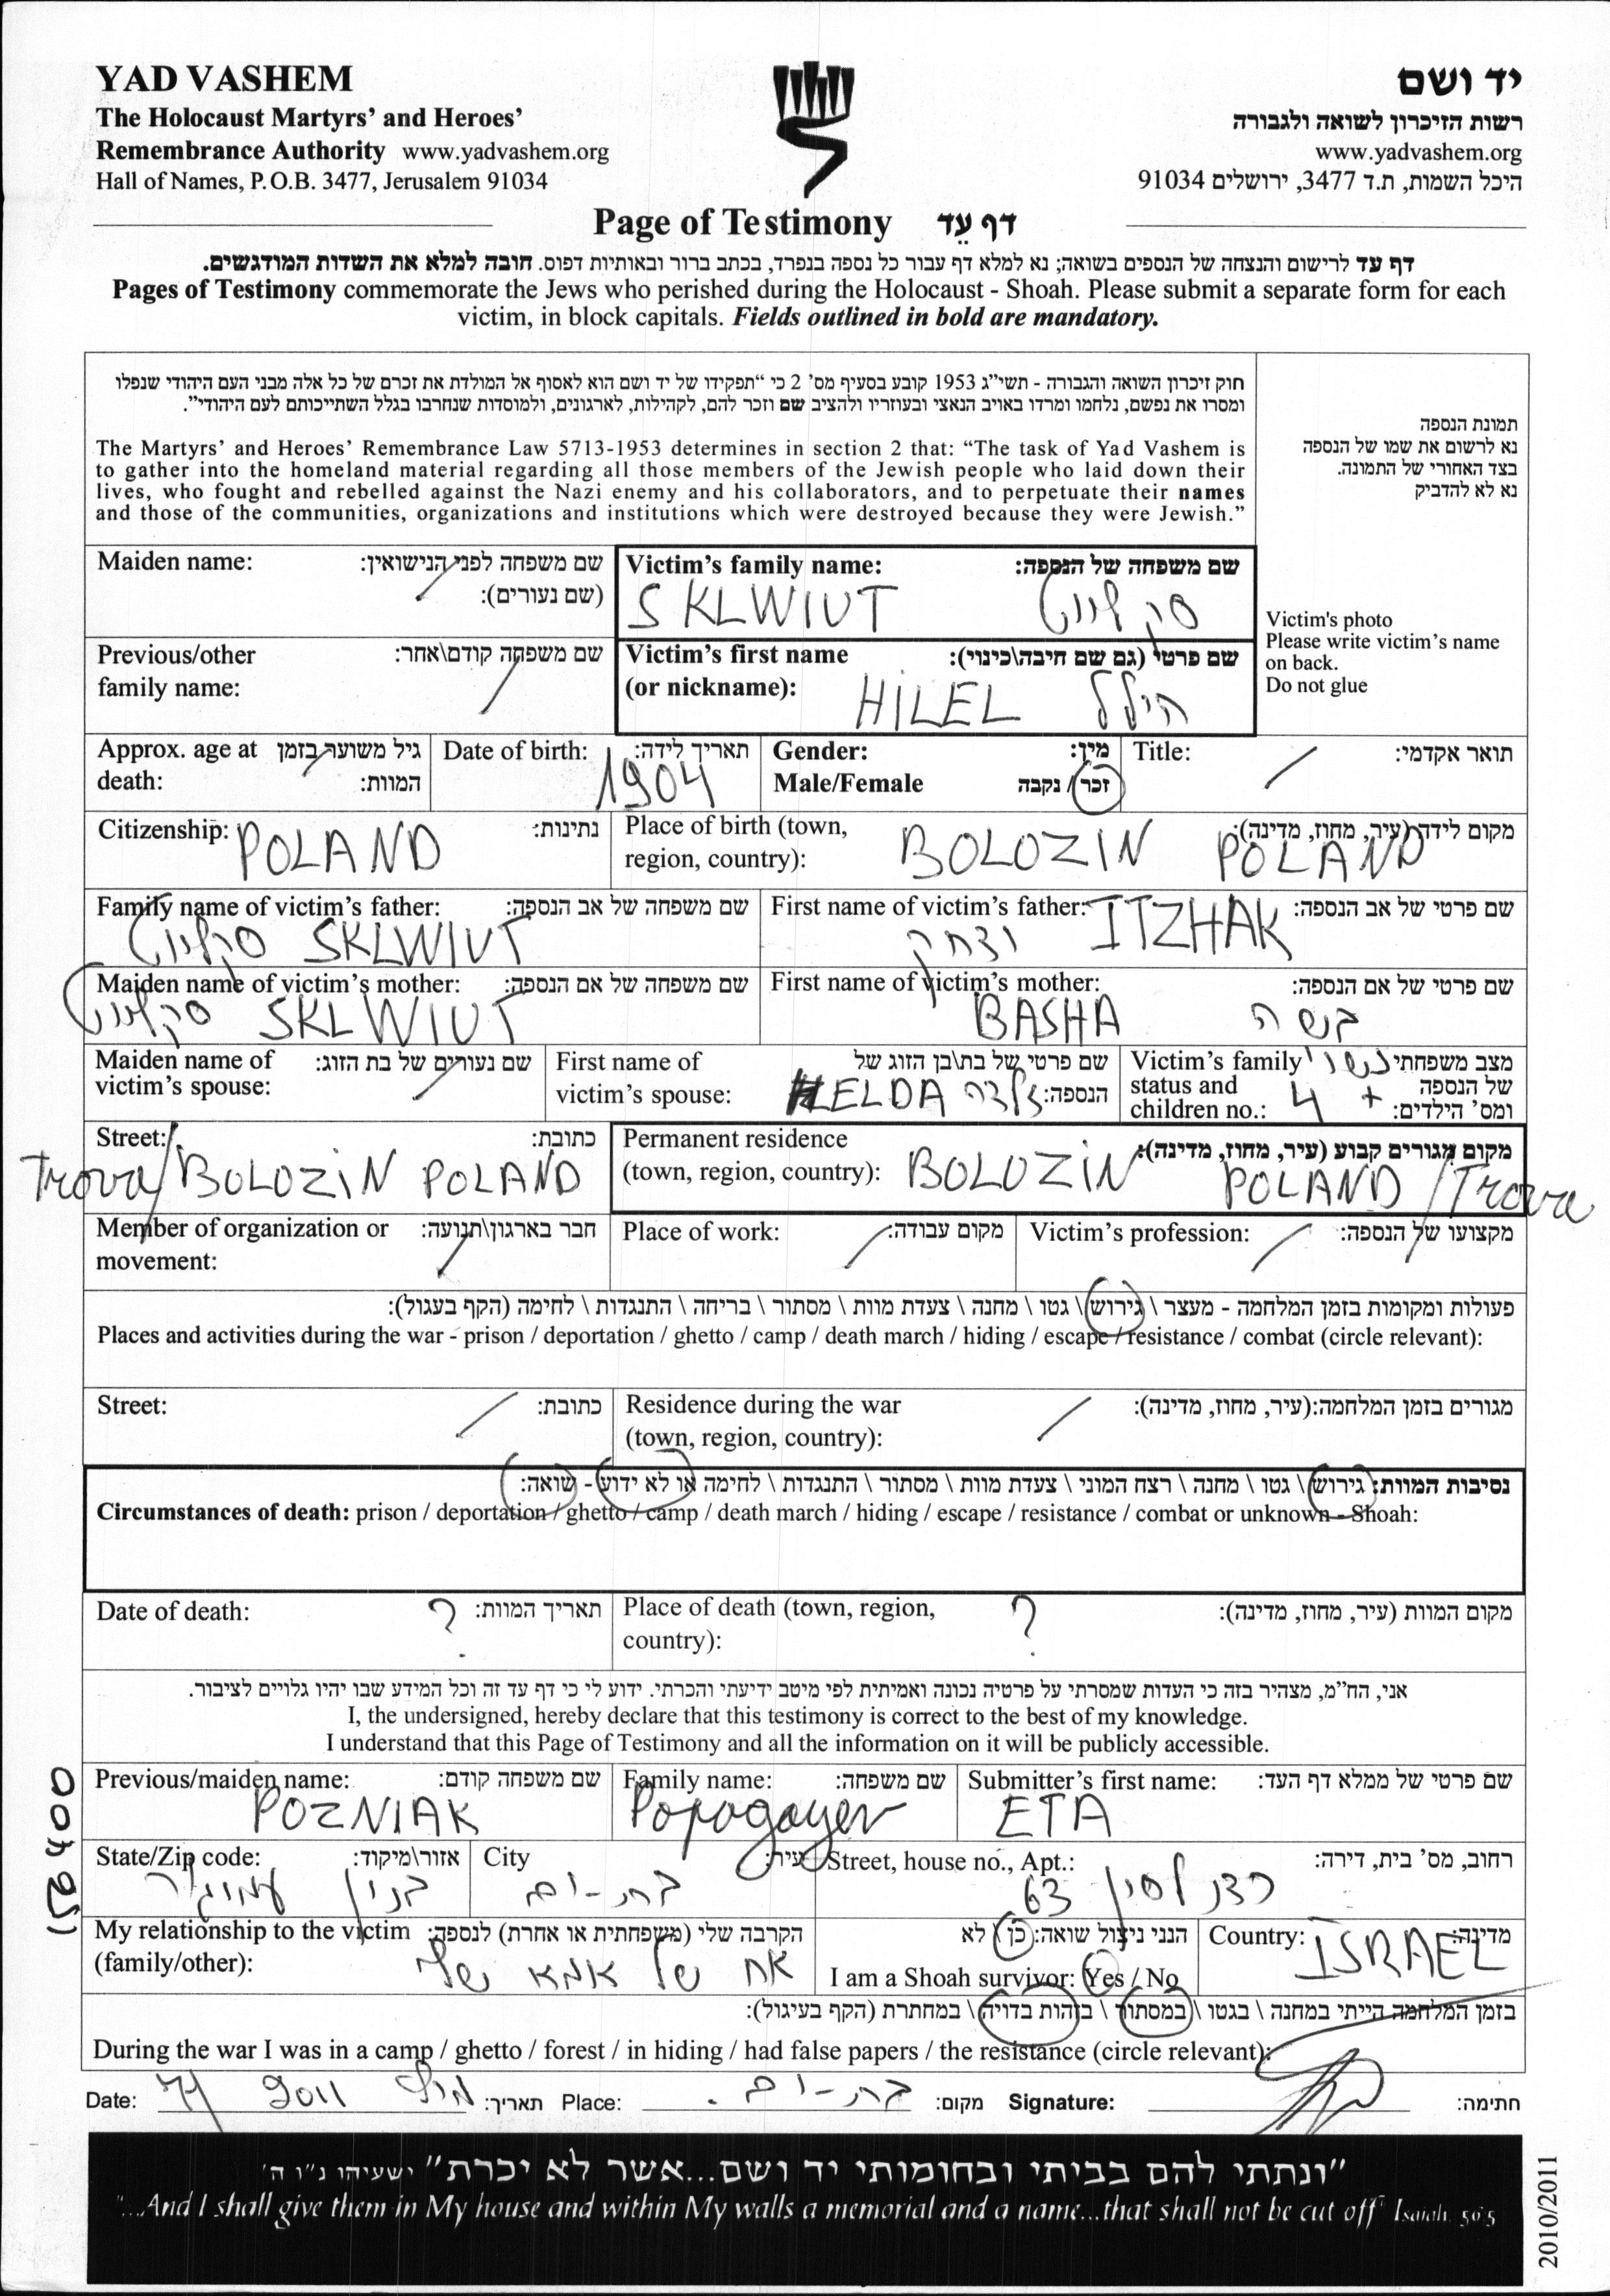 YAD VASHEM
The Holocaust Martyrs' and Heroes'
Remembrance Authority www.yadvashem.org
Hall of Names, P.O.B. 3477, Jerusalem 91034
יד ושם
רשות הזיכרון לשואה ולגבורה
www.yadvashem.org
היכל השמות, ת.ד 3477, ירושלים 91034
Page of Testimony דף עֵד
דף עד לרישום והנצחה של הנספים בשואה; נא למלא דף עבור כל נספה בנפרד, בכתב ברור ובאותיות דפוס. חובה למלא את השדות המודגשים.
Pages of Testimony commemorate the Jews who perished during the Holocaust - Shoah. Please submit a separate form for each
victim, in block capitals. Fields outlined in bold are mandatory.
חוק זיכרון השואה והגבורה - תשי"ג 1953 קובע בסעיף מס' 2 כי "תפקידו של יד ושם הוא לאסוף אל המולדת את זכרם של כל אלה מבני העם היהודי שנפלו
ומסרו את נפשם, נלחמו ומרדו באויב הנאצי ובעוזריו ולהציב שם וזכר להם, לקהילות, לארגונים, ולמוסדות שנחרבו בגלל השתייכותם לעם היהודי".
The Martyrs' and Heroes' Remembrance Law 5713-1953 determines in section 2 that: "The task of Yad Vashem is
to gather into the homeland material regarding all those members of the Jewish people who laid down their
lives, who fought and rebelled against the Nazi enemy and his collaborators, and to perpetuate their names
and those of the communities, organizations and institutions which were destroyed because they were Jewish."
תמונת הנספה
נא לרשום את שמו של הנספה
בצד האחורי של התמונה.
נא לא להדביק
Victim's photo
Please write victim's name
on back.
Do not glue
Maiden name: שם משפחה לפני הנישואין:
(שם נעורים):
Victim's family name: שם משפחה של הנספה:
SKLWIUT סקליוט
Previous/other שם משפחה קודם\אחר:
family name:
Victim's first name שם פרטי (גם שם חיבה\כינוי):
(or nickname): HILEL הילל
Approx. age at גיל משוער בזמן
death: המוות:
Date of birth: תאריך לידה:
1904
Gender: מין:
Male/Female זכר / נקבה
Title: תואר אקדמי:
Citizenship: POLAND נתינות:
Place of birth (town, מקום לידה (עיר, מחוז, מדינה):
region, country): BOLOZIN POLAND
Family name of victim's father: שם משפחה של אב הנספה:
סקליוט SKLWIUT
First name of victim's father: ITZHAK שם פרטי של אב הנספה:
יצחק
Maiden name of victim's mother: שם משפחה של אם הנספה:
סקליוט SKLWIUT
First name of victim's mother: שם פרטי של אם הנספה:
BASHA בשה
Maiden name of שם נעורים של בת הזוג:
victim's spouse:
First name of שם פרטי של בת\בן הזוג של
victim's spouse: ZELDA זלדה הנספה:
Victim's family נשוי מצב משפחתי
status and של הנספה
children no.: 4 + ומס' הילדים:
Street: כתובת:
Trova/BOLOZIN POLAND
Permanent residence מקום מגורים קבוע (עיר, מחוז, מדינה):
(town, region, country): BOLOZIN POLAND /Trova
Member of organization or חבר בארגון\תנועה:
movement:
Place of work: מקום עבודה:
Victim's profession: מקצועו של הנספה:
פעולות ומקומות בזמן המלחמה - מעצר \ גירוש \ גטו \ מחנה \ צעדת מוות \ מסתור \ בריחה \ התנגדות \ לחימה (הקף בעגול):
Places and activities during the war - prison / deportation / ghetto / camp / death march / hiding / escape / resistance / combat (circle relevant):
Street: כתובת:
Residence during the war מגורים בזמן המלחמה:(עיר, מחוז, מדינה):
(town, region, country):
נסיבות המוות: גירוש \ גטו \ מחנה \ רצח המוני \ צעדת מוות \ מסתור \ התנגדות \ לחימה או לא ידוע - שואה:
Circumstances of death: prison / deportation / ghetto / camp / death march / hiding / escape / resistance / combat or unknown - Shoah:
Date of death: ? תאריך המוות:
Place of death (town, region, ? מקום המוות (עיר, מחוז, מדינה):
country):
אני, הח"מ, מצהיר בזה כי העדות שמסרתי על פרטיה נכונה ואמיתית לפי מיטב ידיעתי והכרתי. ידוע לי כי דף עד זה וכל המידע שבו יהיו גלויים לציבור.
I, the undersigned, hereby declare that this testimony is correct to the best of my knowledge.
I understand that this Page of Testimony and all the information on it will be publicly accessible.
Previous/maiden name: שם משפחה קודם:
POZNIAK
Family name: שם משפחה:
Popogayev
Submitter's first name: שם פרטי של ממלא דף העד:
ETA
State/Zip code: אזור\מיקוד:
City עיר:
בת-ים
Street, house no., Apt.: רחוב, מס' בית, דירה:
63
My relationship to the victim הקרבה שלי (משפחתית או אחרת) לנספה:
(family/other): אח של אמא שלי
הנני ניצול שואה: כן \ לא
I am a Shoah survivor: Yes / No
Country: ISRAEL מדינה:
בזמן המלחמה הייתי במחנה \ בגטו \ במסתור \ בזהות בדויה \ במחתרת (הקף בעיגול):
During the war I was in a camp / ghetto / forest / in hiding / had false papers / the resistance (circle relevant):
Date: 2011 תאריך: Place: בת-ים. מקום: Signature: חתימה:
"ונתתי להם בביתי ובחומותי יד ושם...אשר לא יכרת" ישעיהו נ"ו ה'
"...And I shall give them in My house and within My walls a memorial and a name...that shall not be cut off" Isaiah 56:5
2010/2011